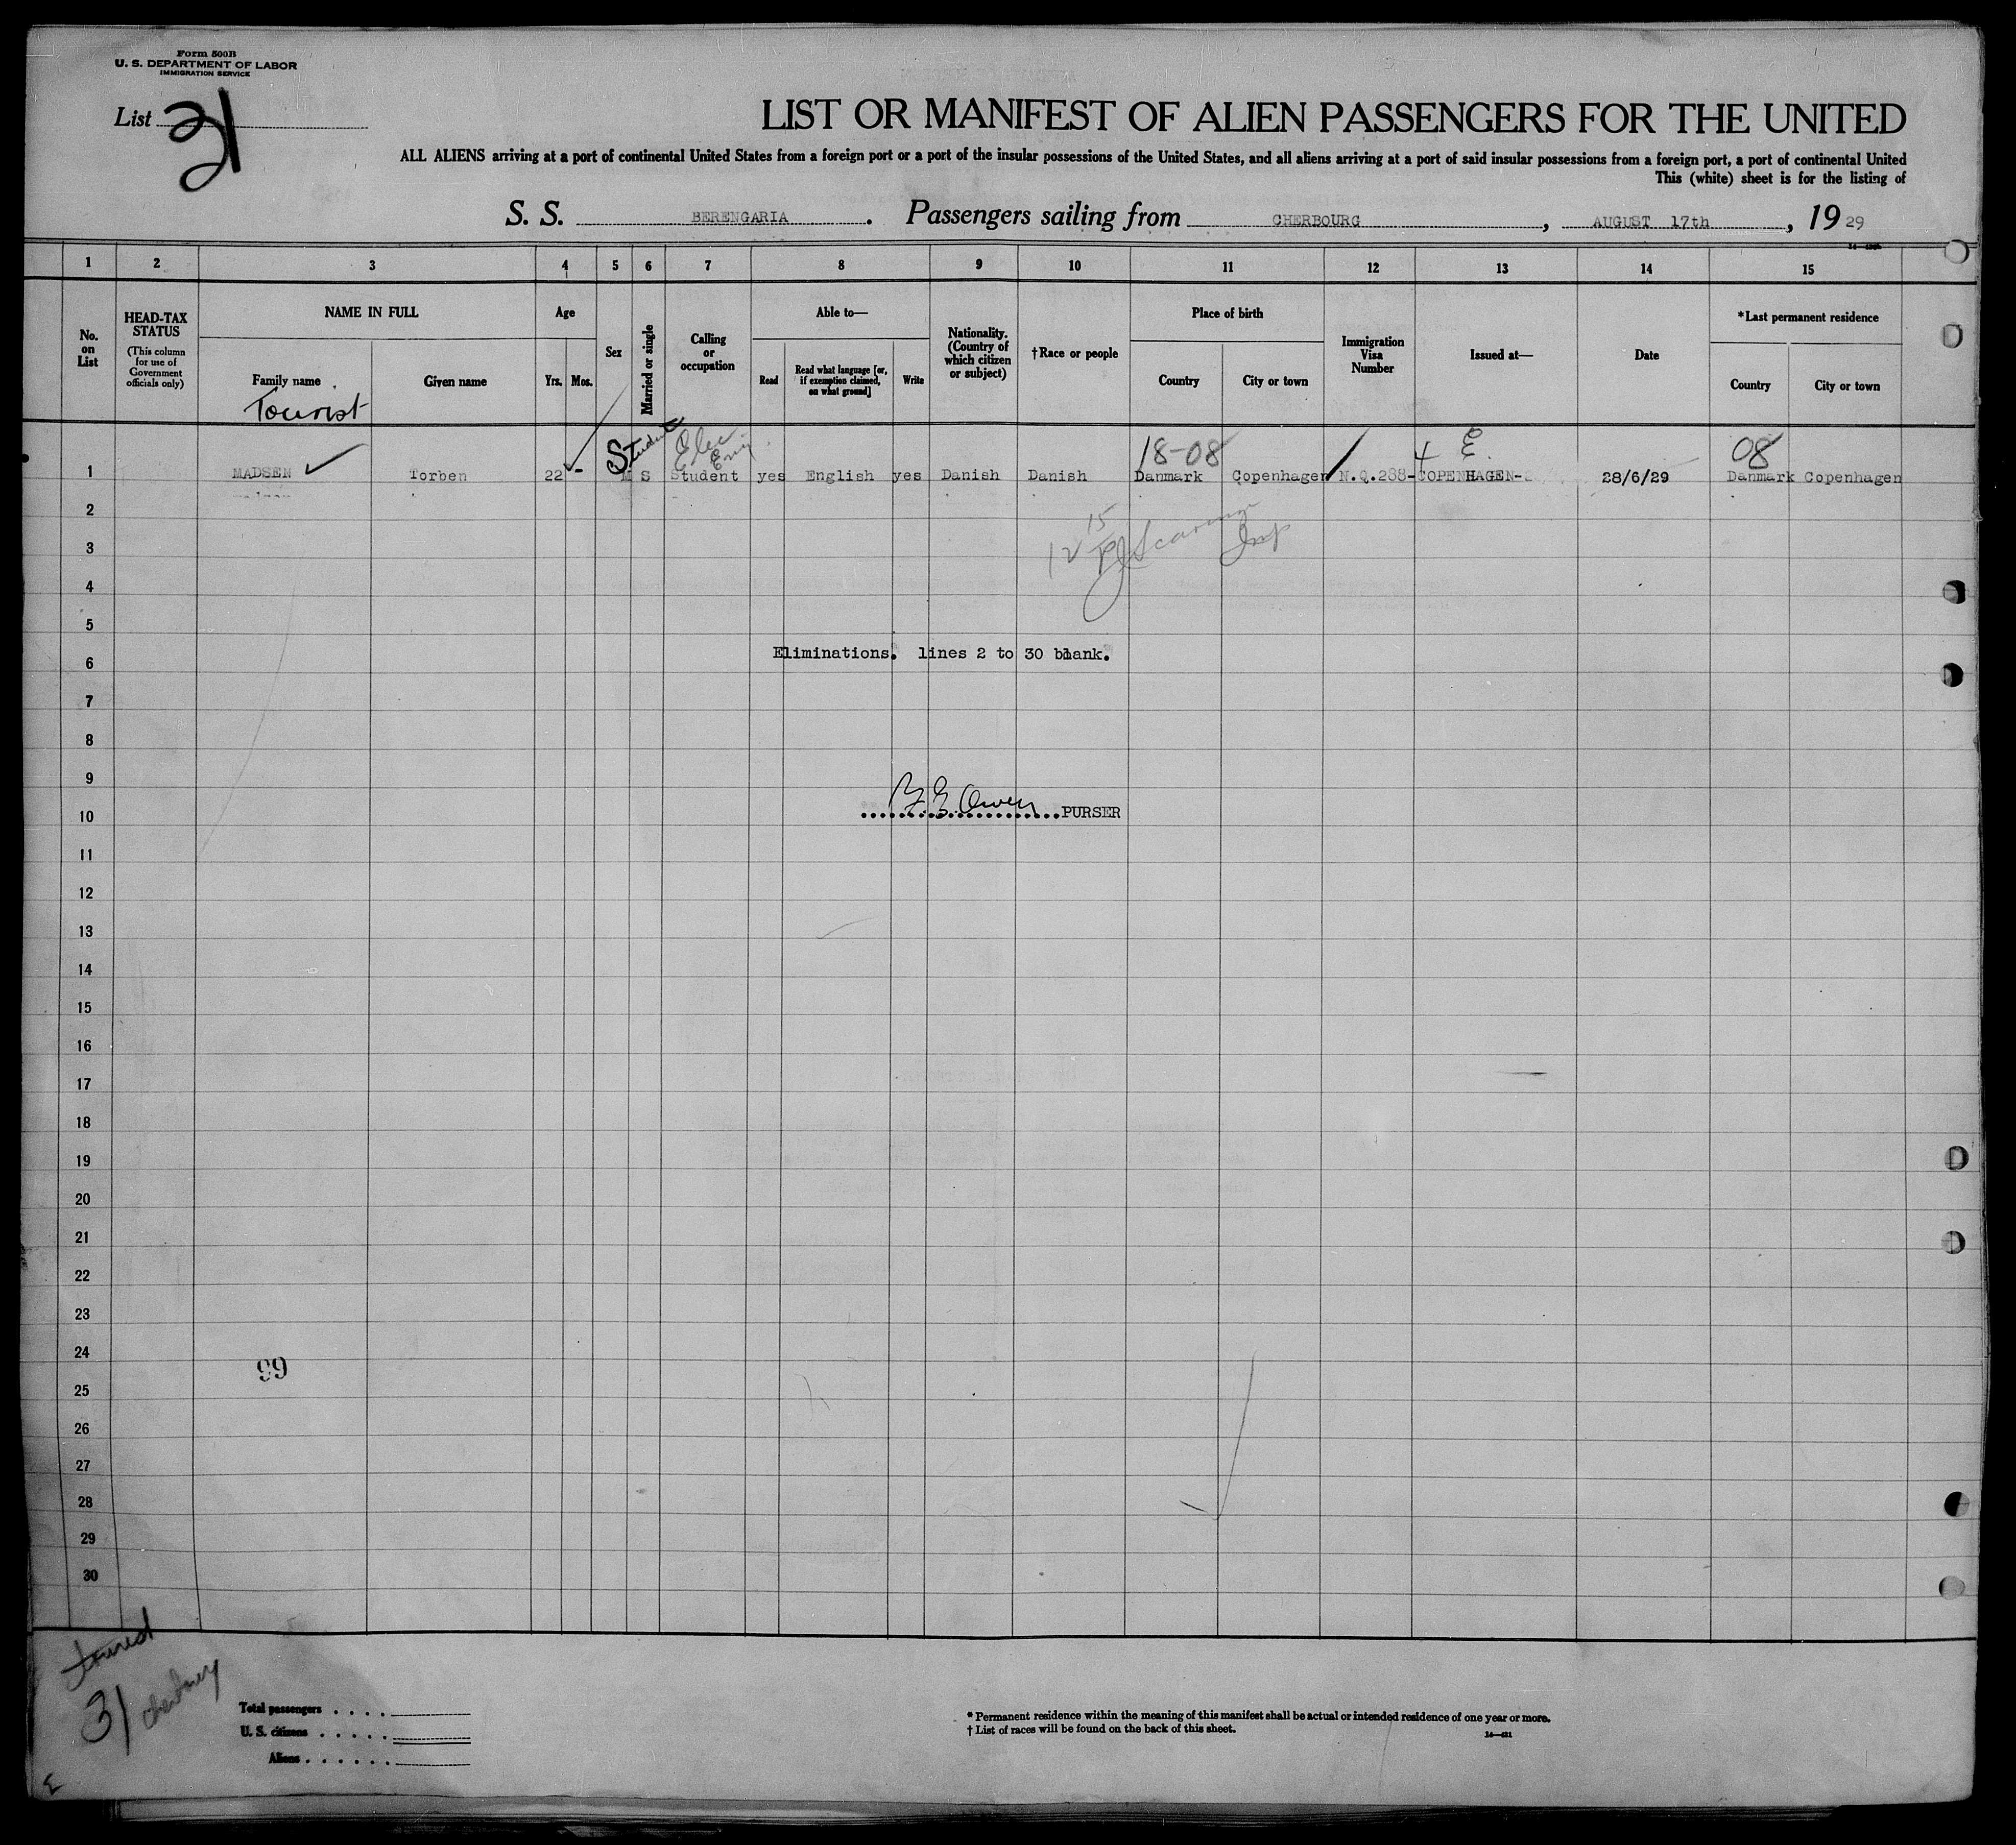 Form 500B
U. S. DEPARTMENT OF LABOR
IMMIGRATION SERVICE
List 31
LIST OR MANIFEST OF ALIEN PASSENGERS FOR THE UNITED
ALL ALIENS arriving at a port of continental United States from a foreign port or a port of the insular possessions of the United States, and all aliens arriving at a port of said insular possessions from a foreign port, a port of continental United
This (white) sheet is for the listing of
S. S. BERENGARIA. Passengers sailing from CHERBOURG, AUGUST 17th, 1929
1 2 3 4 5 6 7 8 9 10 11 12 13 14 15
No. on List
HEAD-TAX STATUS
(This column for use of Government officials only)
NAME IN FULL
Family name
Given name
Age
Yrs. Mos.
Sex
Married or single
Calling or occupation
Able to—
Read
Read what language [or, if exemption claimed, on what ground]
Write
Nationality. (Country of which citizen or subject)
†Race or people
Place of birth
Country
City or town
Immigration Visa Number
Issued at—
Date
*Last permanent residence
Country
City or town
Tourist
Student
Elec Eng
18-08
4 E.
08
1 MADSEN Torben 22 - M S Student yes English yes Danish Danish Danmark Copenhagen N.Q.288- COPENHAGEN- 28/6/29 Danmark Copenhagen
2
3
4
5
Eliminations. lines 2 to 30 blank.
6
7
8
9
10
Owen PURSER
11
12
13
14
15
16
17
18
19
20
21
22
23
24
99
25
26
27
28
29
30
31
Total passengers . . . .
U. S. citizens . . . . .
Aliens . . . . . .
* Permanent residence within the meaning of this manifest shall be actual or intended residence of one year or more.
† List of races will be found on the back of this sheet.